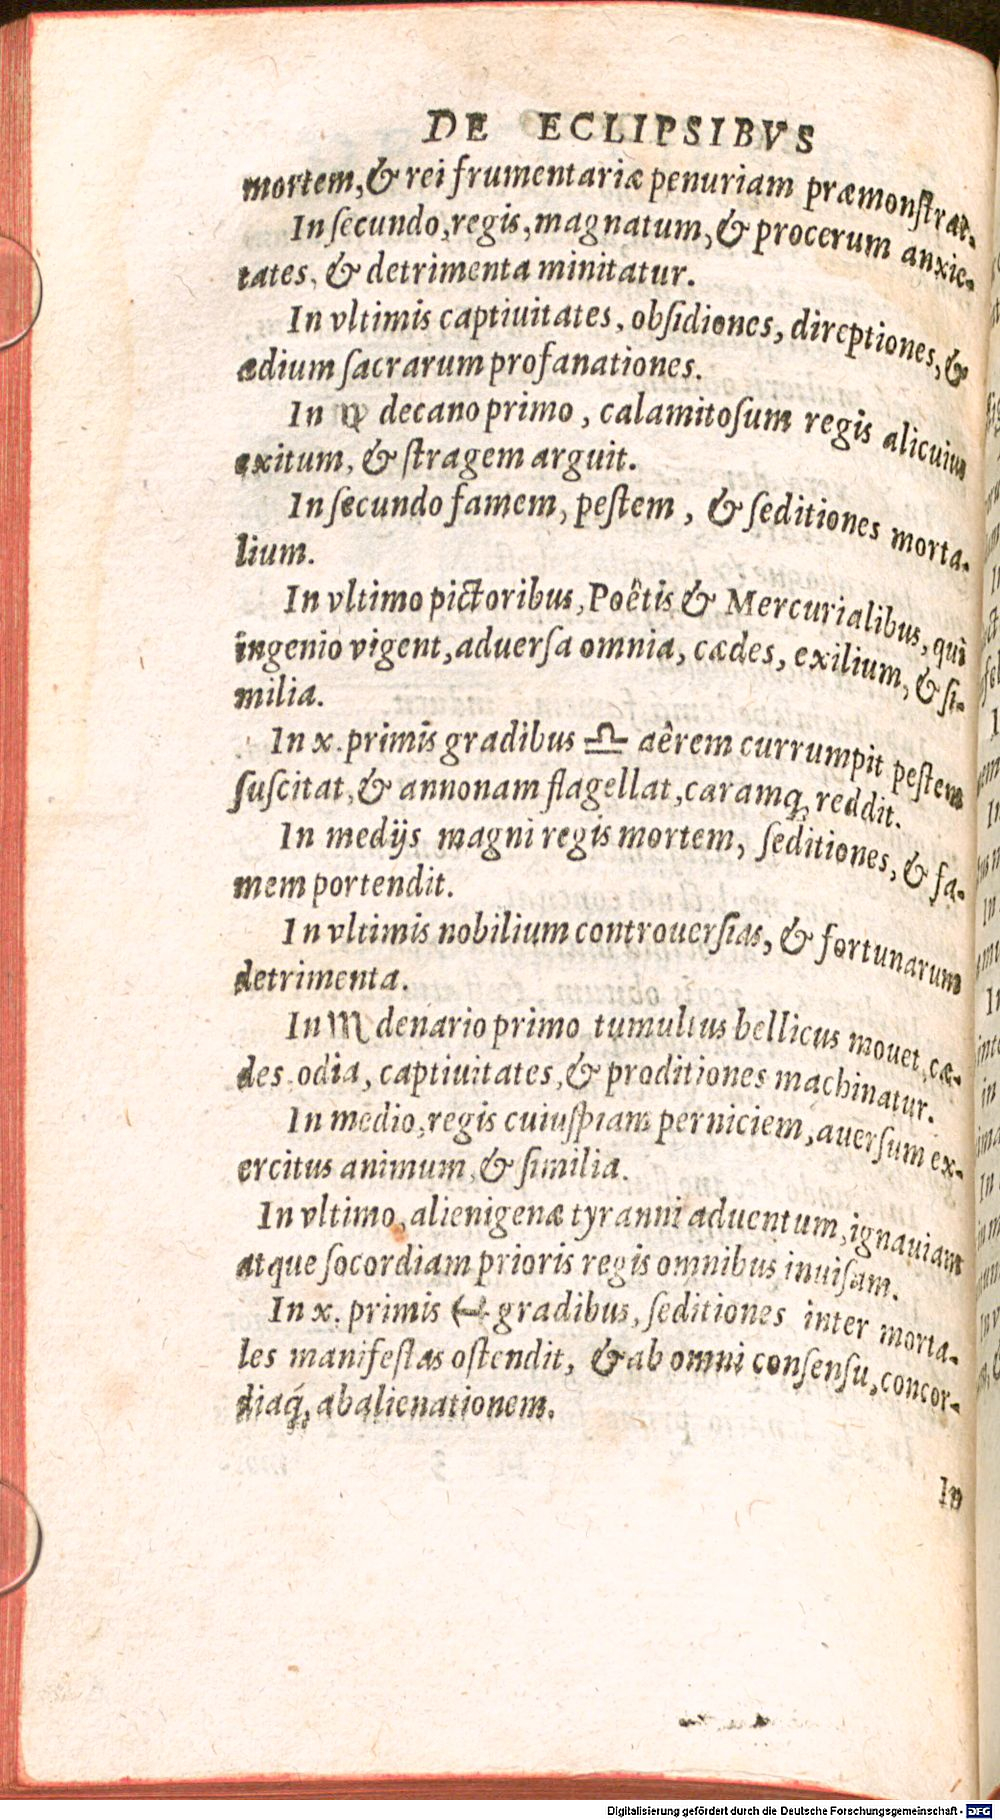 DE ECLIPSIBVS
mortem, & rei frumentariæ penuriam præmonstrat.
In secundo, regis, magnatum, & procerum anxie-
tates, & detrimenta minitatur.
In vltimis captiuitates, obsidiones, direptiones, &
ædium sacrarum profanationes.
In ♍ decano primo, calamitosum regis alicuius
exitum, & stragem arguit.
In secundo famem, pestem, & seditiones morta-
lium.
In vltimo pictoribus, Poêtis & Mercurialibus, qui
ingenio vigent, aduersa omnia, cædes, exilium, & si-
milia.
In x. primis gradibus ♎ aêrem currumpit pestem
suscitat, & annonam flagellat, caramq́; reddit.
In medijs magni regis mortem, seditiones, & fa-
mem portendit.
In vltimis nobilium controuersias, & fortunarum
detrimenta.
In ♏ denario primo tumultus bellicus mouet, cæ-
des odia, captiuitates, & proditiones machinatur.
In medio, regis cuiuspiam perniciem, auersum ex-
ercitus animum, & similia.
In vltimo, alienigenæ tyranni aduentum, ignauiam
atque socordiam prioris regis omnibus inuisam.
In x. primis ♐ gradibus, seditiones inter morta-
les manifestas ostendit, & ab omni consensu, concor-
diaq́; abalienationem.
In
Digitalisierung gefördert durch die Deutsche Forschungsgemeinschaft - DFG